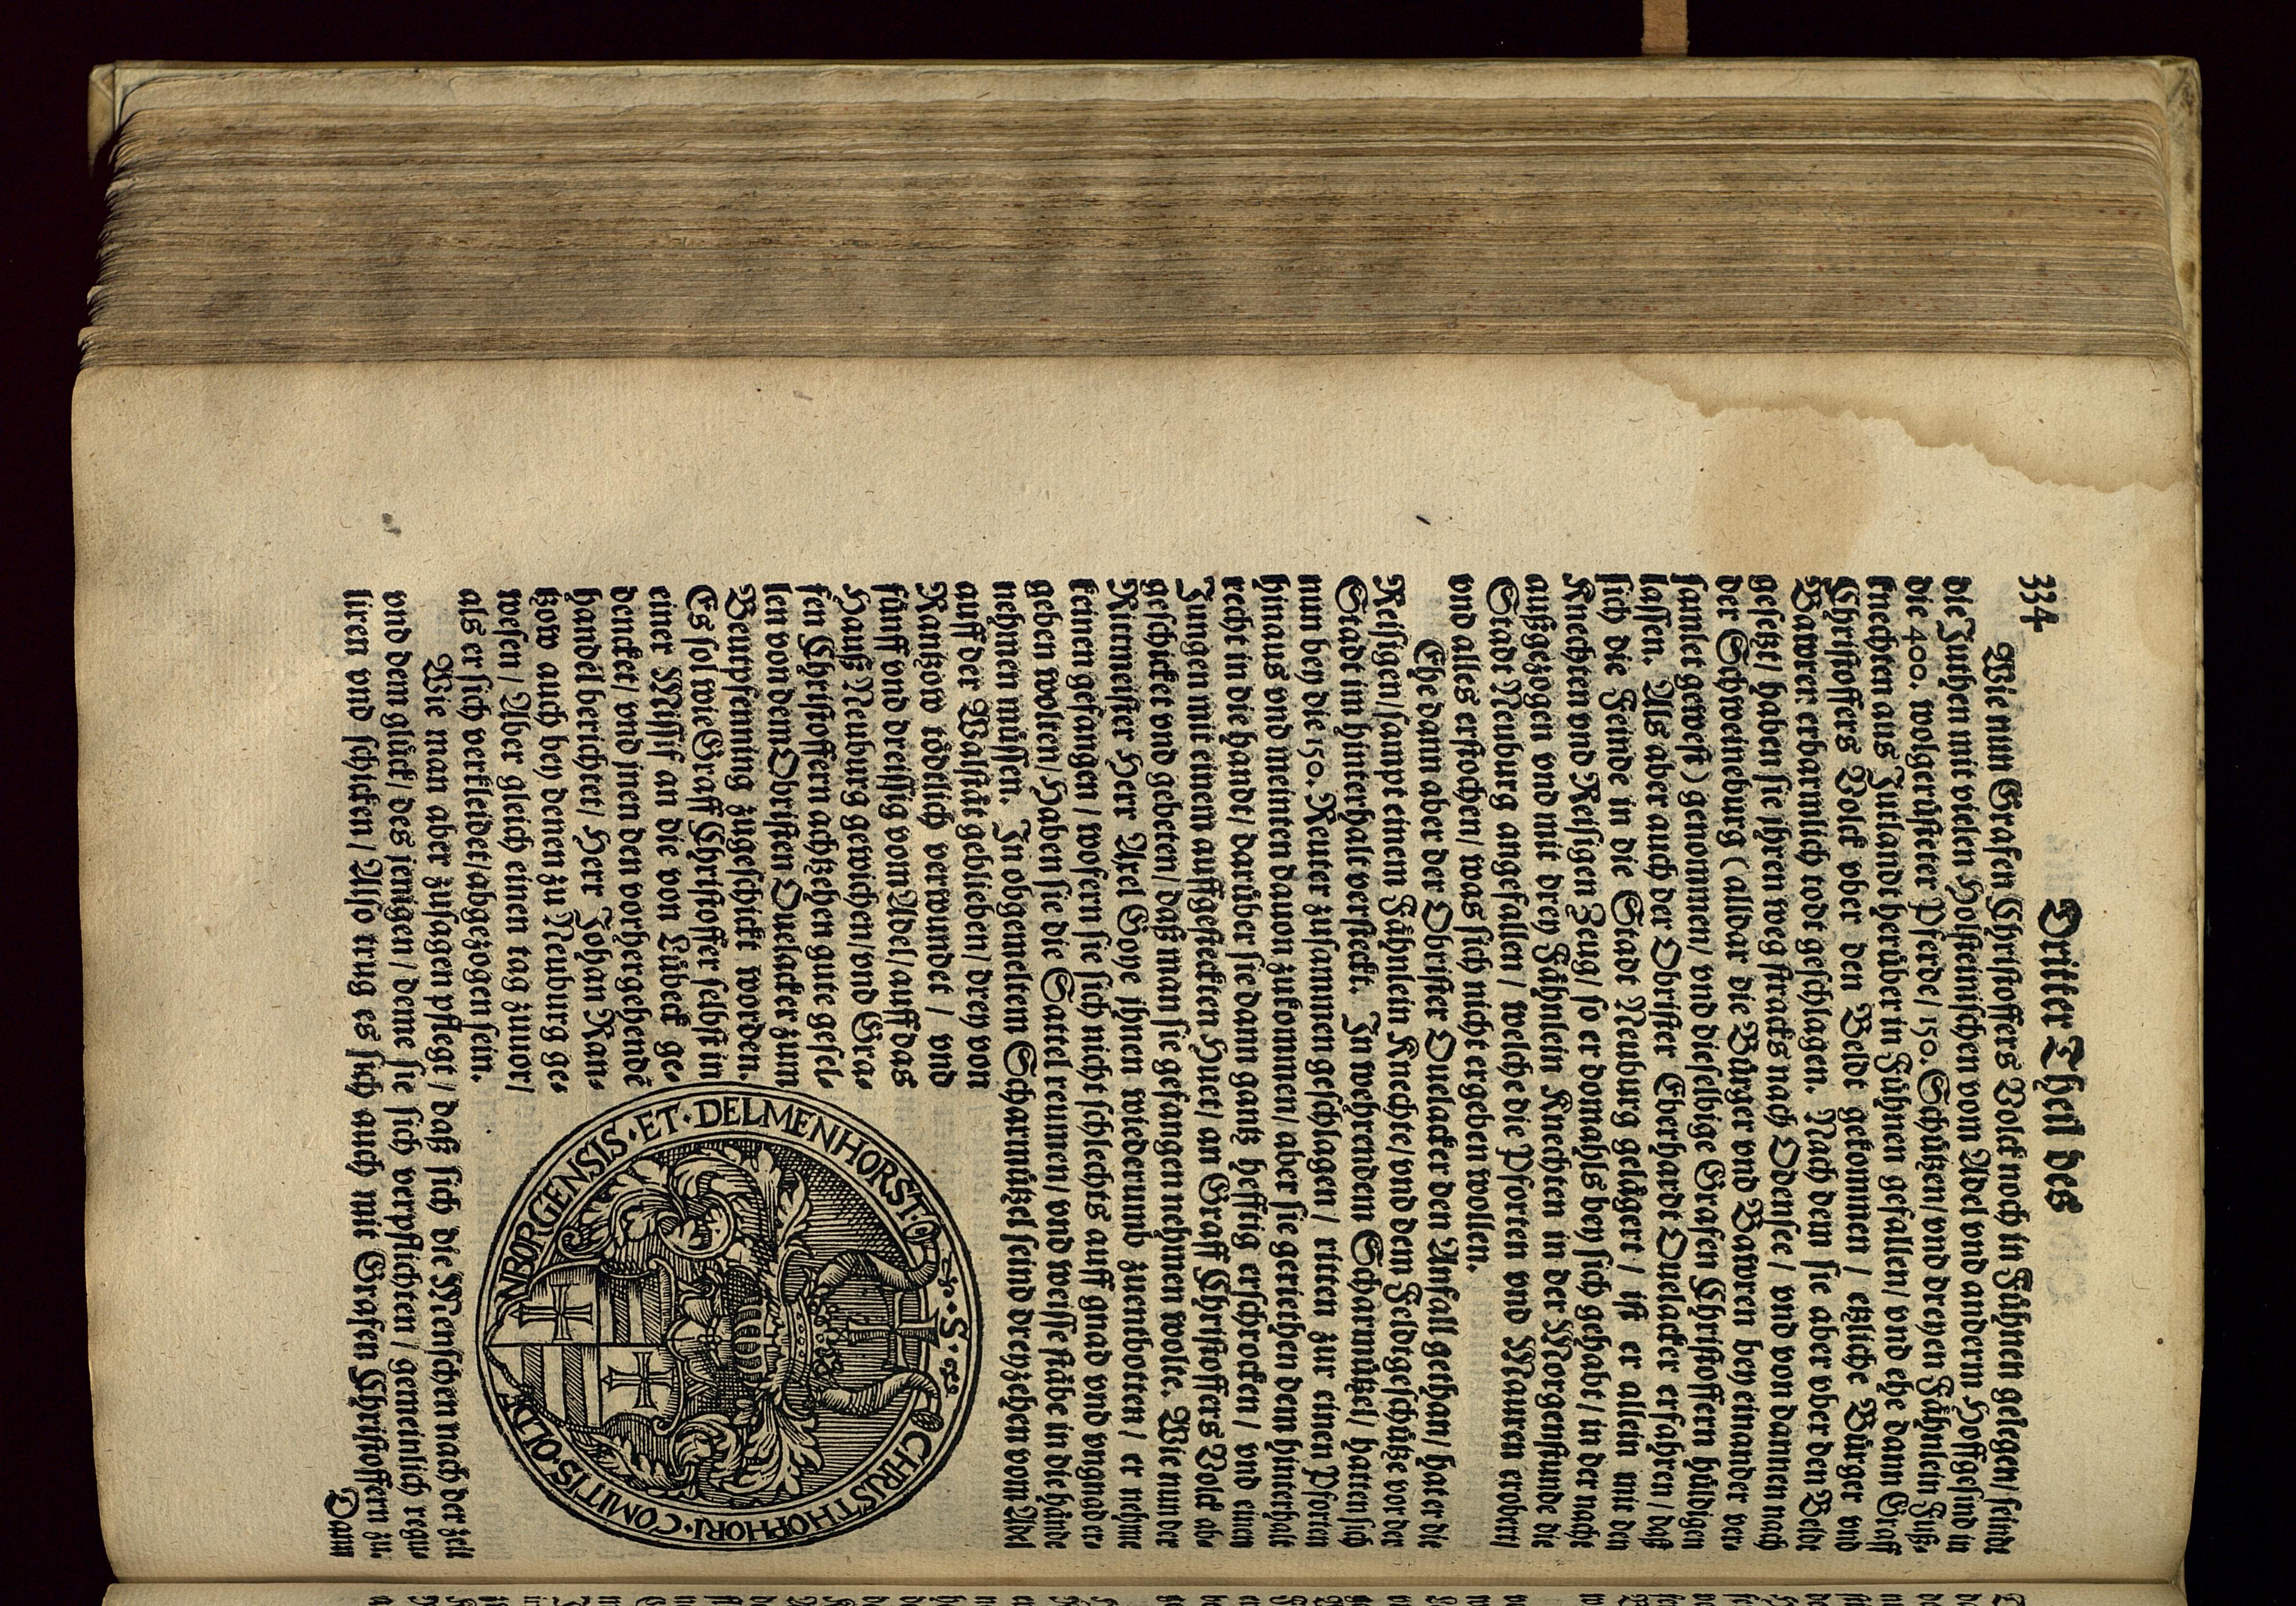 334
Dritter Theil des
Wie nun Grafen Christoffers Volck noch in Fühnen gelegen/ seindt
die Juthen mit vielen Holsteinischen vom Adel vnd anderm Hoffgesind in
die 400. wolgerüsteter Pferde/ 150. Schützen/ vnd dreyen Fähnlein Fuß-
knechten aus Jutlandt herüber in Fühnen gefallen/ vnd ehe dann Graff
Christoffers Volck vber den Beldt gekommen / etzliche Bürger vnd
Bawren erbarmlich todt geschlagen. Nach dem sie aber vber den Beldt
gesetzt/ haben sie ihren weg stracks nach Odensee / vnd von dannen nach
der Schweineburg (alldar die Bürger vnd Bawren bey einander ver-
samlet gewest) genommen/ vnd dieselbige Grafen Christoffern huldigen
lassen. Als aber auch der Obrister Eberhardt Ouelacker erfahren / daß
sich die Feinde in die Stadt Neuburg gelägert / ist er allein mit den
Knechten vnd Reisigen Zeug/ so er domahls bey sich gehabt/ in der nacht
außgezogen vnd mit drey Fähnlein Knechten in der Morgenstunde die
Stadt Neuburg angefallen / welche die Pforten vnd Mauren erobert/
vnd alles erstochen/ was sich nicht ergeben wollen.
Ehe dann aber der Obrister Ouelacker den Anfall gethan/ hat er die
Reisigen/ sampt einem Fähnlein Knechte/ vnd dem Feldtgeschütze vor der
Stadt im hinterhalt versteckt. In wehrendem Scharmützel/ hatten sich
nun bey die 150. Reuter zusammen geschlagen / ritten zur einen Pforten
hinaus vnd meinten dauon zukommen/ aber sie geriethen dem hinterhalt
recht in die handt/ darüber sie dann gantz hefftig erschrocken / vnd einen
Jungen mit einem auffgesteckten Huet/ an Graff Christoffers Volck ab-
geschicket vnd gebeten/ daß man sie gefangen nehmen wolte. Wie nun der
Ritmeister Herr Axel Goye ihnen wiederumb zuentbotten / er nehme
keinen gefangen / wofern sie sich nicht schlechts auff gnad vnd vngnad er-
geben wolten/ Haben sie die Sattel reumen/ vnd weisse stäbe in die hände
nehmen müssen. In obgemeltem Scharmützel seind dreyzehen vom Adel
auff der Walstät geblieben/ drey von
Rantzow tödtlich verwundet / vnd
fünff vnd dreissig vom Adel/ auff das
Hauß Neuburg gewichen/ vnd Gra-
fen Christoffern achtzehen gute gesel-
len von dem Obristen Ouelacker zum
Beutpfenning zugeschickt worden.
Es sol wie Graff Christoffer selbst in
einer Missif an die von Lübeck ge-
dencket/ vnd jnen den vorhergehende
handel berichtet/ Herr Johan Ran-
tzow auch bey denen zu Neuburg ge-
wesen / Aber gleich einen tag zuuor/
als er sich verkleidet/ abgezogen sein.
S. CHRISTHOPHORI. COMITIS. OLDENBORGENSIS. ET. DELMENHORST
Wie man aber zusagen pflegt/ daß sich die Menschen nach der zeit
vnd dem glück/ des jenigen / deme sie sich verpflichten / gemeinlich regu-
liren vnd schicken / Also trug es sich auch mit Grafen Christoffern zu.
Dann